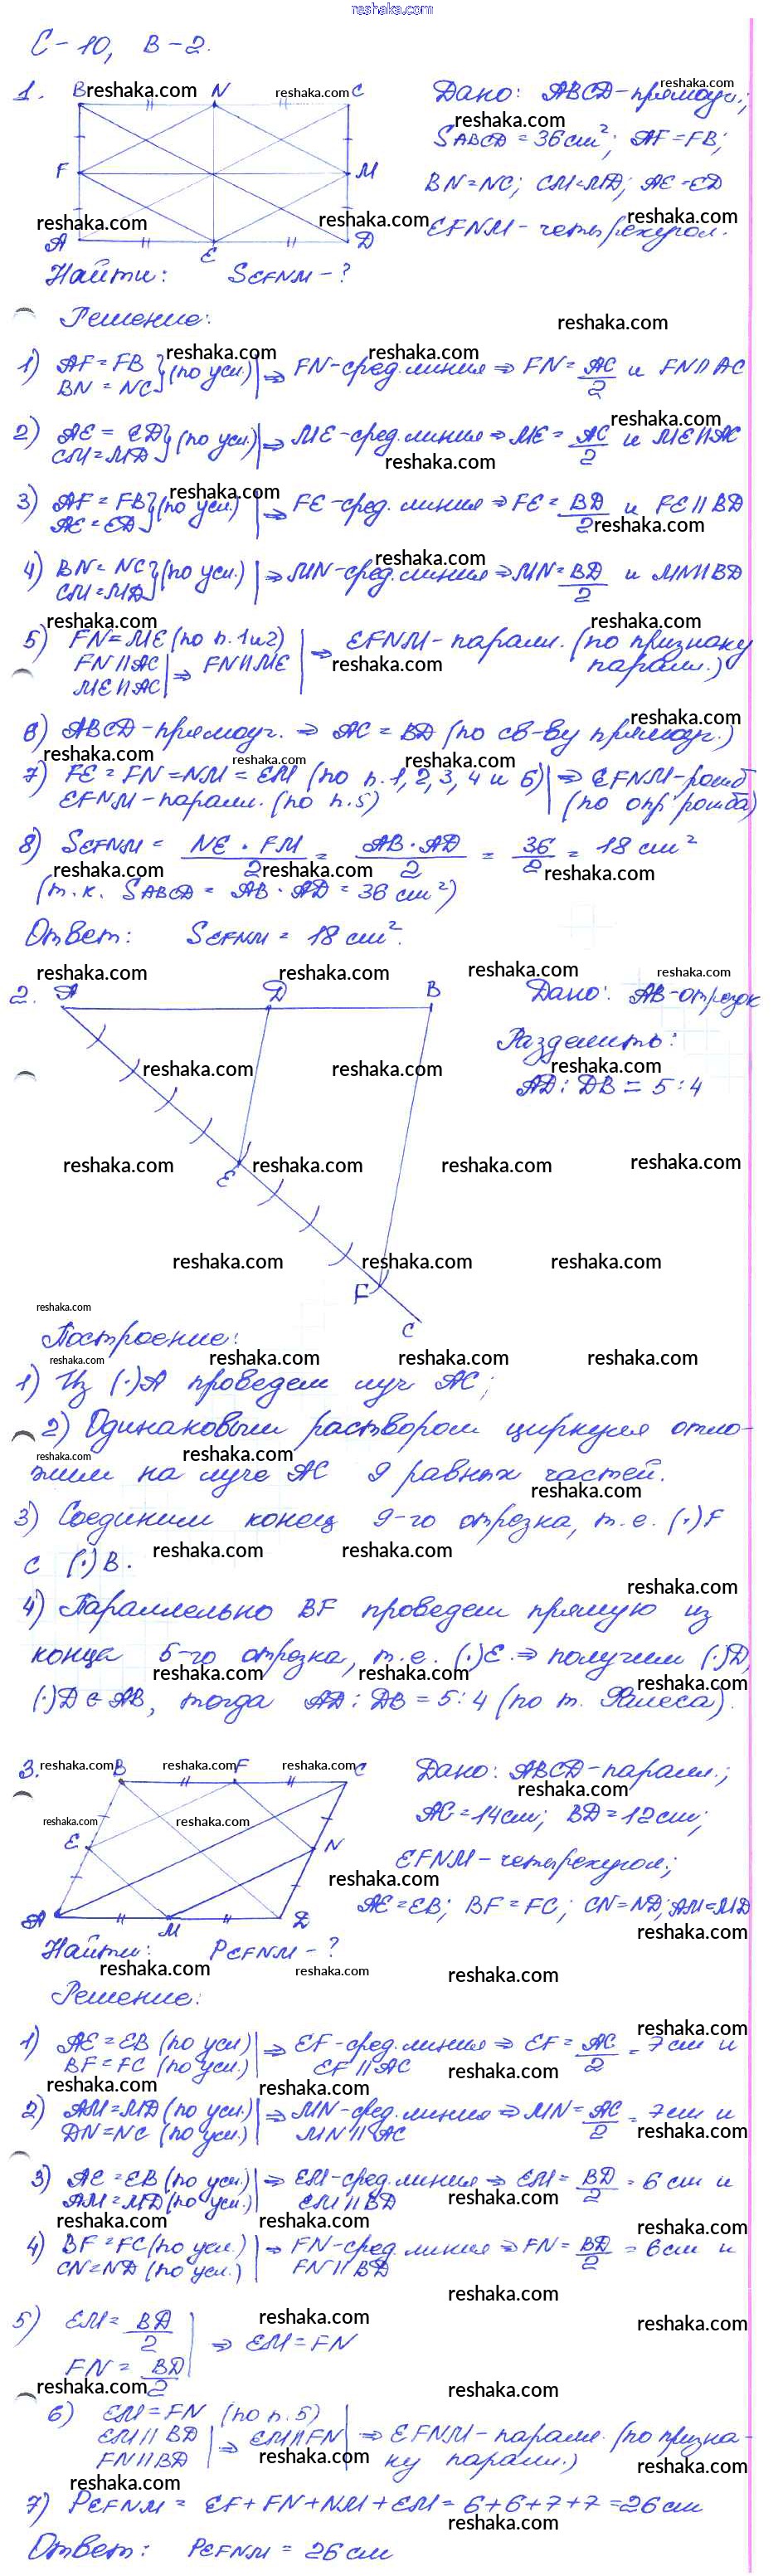 reshaka.com
С-10, В-2.
1. B N C Дано: ABCD-прямоуг.;
SABCD = 36 см²; AF = FB;
F M BN = NC; CM = MD; AE = ED
A E D EFNM - четырехугол.
Найти: SEFNM - ?
Решение:
1) AF = FB
BN = NC } (по усл.) | ⇒ FN-сред. линия ⇒ FN = AC/2 и FN || AC
2) AE = ED
CM = MD } (по усл.) | ⇒ ME-сред. линия ⇒ ME = AC/2 и ME || AC
3) AF = FB
AE = ED } (по усл.) | ⇒ FE-сред. линия ⇒ FE = BD/2 и FE || BD
4) BN = NC
CM = MD } (по усл.) | ⇒ MN-сред. линия ⇒ MN = BD/2 и MN || BD
5) FN = ME (по п. 1 и 2)
FN || AC
ME || AC | ⇒ FN || ME | ⇒ EFNM - паралл. (по признаку
паралл.)
6) ABCD-прямоуг. ⇒ AC = BD (по св-ву прямоуг.)
7) FE = FN = NM = EM (по п. 1, 2, 3, 4 и 6) | ⇒ EFNM-ромб
EFNM - паралл. (по п. 5) (по опр. ромба)
8) SEFNM = NE · FM / 2 = AB · AD / 2 = 36/2 = 18 см²
(т.к. SABCD = AB · AD = 36 см²)
Ответ: SEFNM = 18 см².
2. A D B Дано: AB-отрезок
Разделить:
AD : DB = 5 : 4
E
F
C
Построение:
1) Из (·)A проведем луч AC;
2) Одинаковым раствором циркуля отло-
жим на луче AC 9 равных частей.
3) Соединим конец 9-го отрезка, т.е. (·)F
с (·)B.
4) Параллельно BF проведем прямую из
конца 5-го отрезка, т.е. (·)E ⇒ получим (·)D,
(·)D ∈ AB, тогда AD : DB = 5 : 4 (по т. Фалеса).
3. B F C Дано: ABCD - паралл.;
AC = 14 см; BD = 12 см;
E N EFNM - четырехугол.;
A M D AE = EB; BF = FC; CN = ND; AM = MD
Найти: PEFNM - ?
Решение:
1) AE = EB (по усл.)
BF = FC (по усл.) | ⇒ EF-сред. линия ⇒ EF = AC/2 = 7 см и
EF || AC
2) AM = MD (по усл.)
DN = NC (по усл.) | ⇒ MN-сред. линия ⇒ MN = AC/2 = 7 см и
MN || AC
3) AE = EB (по усл.)
AM = MD (по усл.) | ⇒ EM-сред. линия ⇒ EM = BD/2 = 6 см и
EM || BD
4) BF = FC (по усл.)
CN = ND (по усл.) | ⇒ FN-сред. линия ⇒ FN = BD/2 = 6 см и
FN || BD
5) EM = BD/2
FN = BD/2 | ⇒ EM = FN
6) EM = FN (по п. 5)
EM || BD
FN || BD | ⇒ EM || FN | ⇒ EFNM - паралл. (по призна-
ку паралл.)
7) PEFNM = EF + FN + NM + EM = 6 + 6 + 7 + 7 = 26 см
Ответ: PEFNM = 26 см